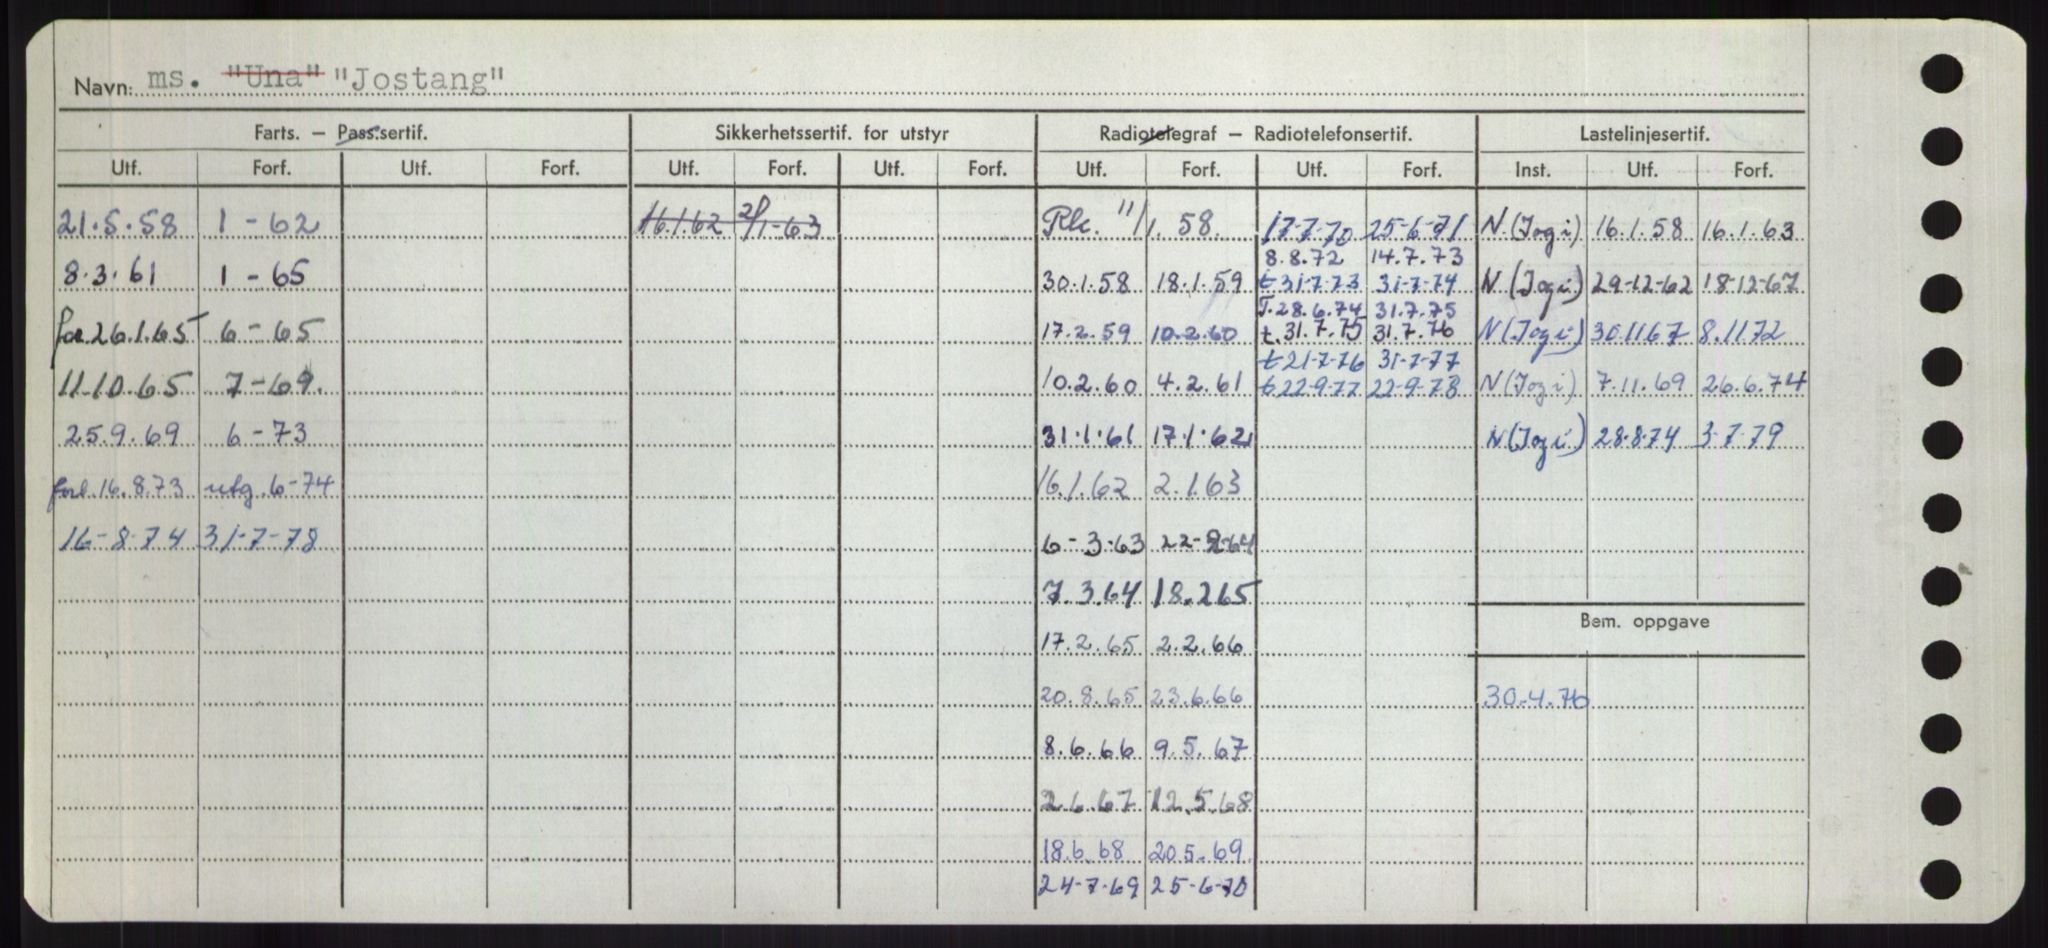 Navn: ms. "Una" "Jostang"
Farts. – Pass.sertif. Sikkerhetssertif. for utstyr Radiotelegraf – Radiotelefonsertif. Lastelinjesertif.
Utf. Forf. Utf. Forf. Utf. Forf. Utf. Forf. Utf. Forf. Utf. Forf. Inst. Utf. Forf.
21.5.58 1-62 16.1.62 2/1-63 Rk. 11/1.58. 17-7-70 25-6-71 N (Jogi) 16.1.58 16.1.63
8.8.72 14.7.73
8.3.61 1-65 30.1.58 18.1.59 t 31-7-73 31-7-74 N (Jogi) 29-12-62 18-12-67
T. 28.6.74 31.7.75
for 26.1.65 6-65 17.2.59 10.2.60 t. 31.7.75 31.7.76 N (Jogi) 30.11.67 8.11.72
t 21-7-76 31-7-77
11.10.65 7-69. 10.2.60 4.2.61 t 22-9-77 22-9-78 N (Jogi) 7.11.69 26.6.74
25.9.69 6-73 31.1.61 17.1.62 N (Jogi) 28.8.74 3-7-79
forl. 16.8.73 utg. 6-74 16.1.62 2.1.63
16-8-74 31-7-78 6-3-63 22-2-64
7.3.64 18.2.65
Bem. oppgave
17.2.65 2.2.66
20.8.65 23.6.66 30.4.76
8.6.66 9.5.67
2.6.67 12.5.68
18.6.68 20.5.69
24-7-69 25-6-70